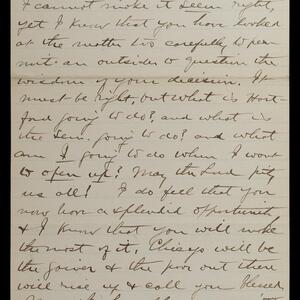 I cannot make it seem right,
yet I know that you have looked
at the matter too carefully to per-
mit an outsider to question the
wisdom of your decision. It
must be right, but what is Hart-
ford going to do?, and what is
the Sem. going to do? and what
am I going to do when I want
to open up? May the Lord pity
us all! I do feel that you
now have a splendid opportunity
& I know that you will make
the most of it. Chicago will be
the gainer & the poor out there
will rise up & call you blessed